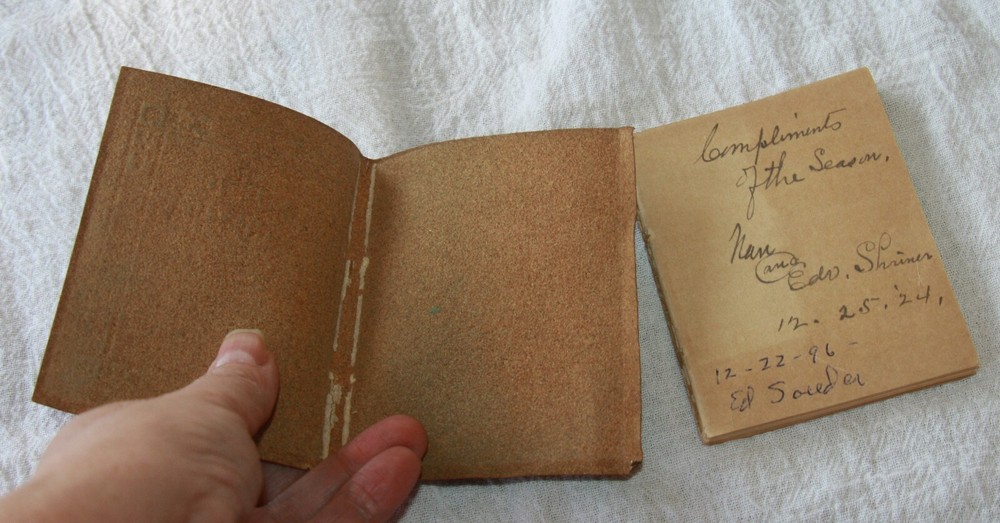 Compliments
of the Season.
Nan
and
Edw. Shriner
12. 25. '24.
12-22-96-
Ed Souder